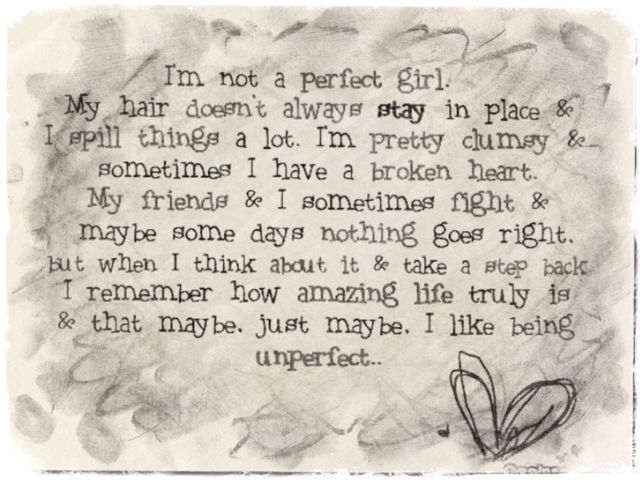 I'm not a perfect girl.
My hair doesn't always stay in place &
I spill things a lot. I'm pretty clumsy &
sometimes I have a broken heart.
My friends & I sometimes fight &
maybe some days nothing goes right.
but when I think about it & take a step back
I remember how amazing life truly is
& that maybe. just maybe. I like being
unperfect..